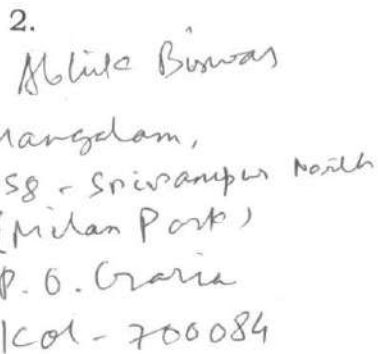 2.
Abhik Biswas
Mangalam,
58 - Srirampur North
(Milan Park)
P.O. Garia
Kol - 700084